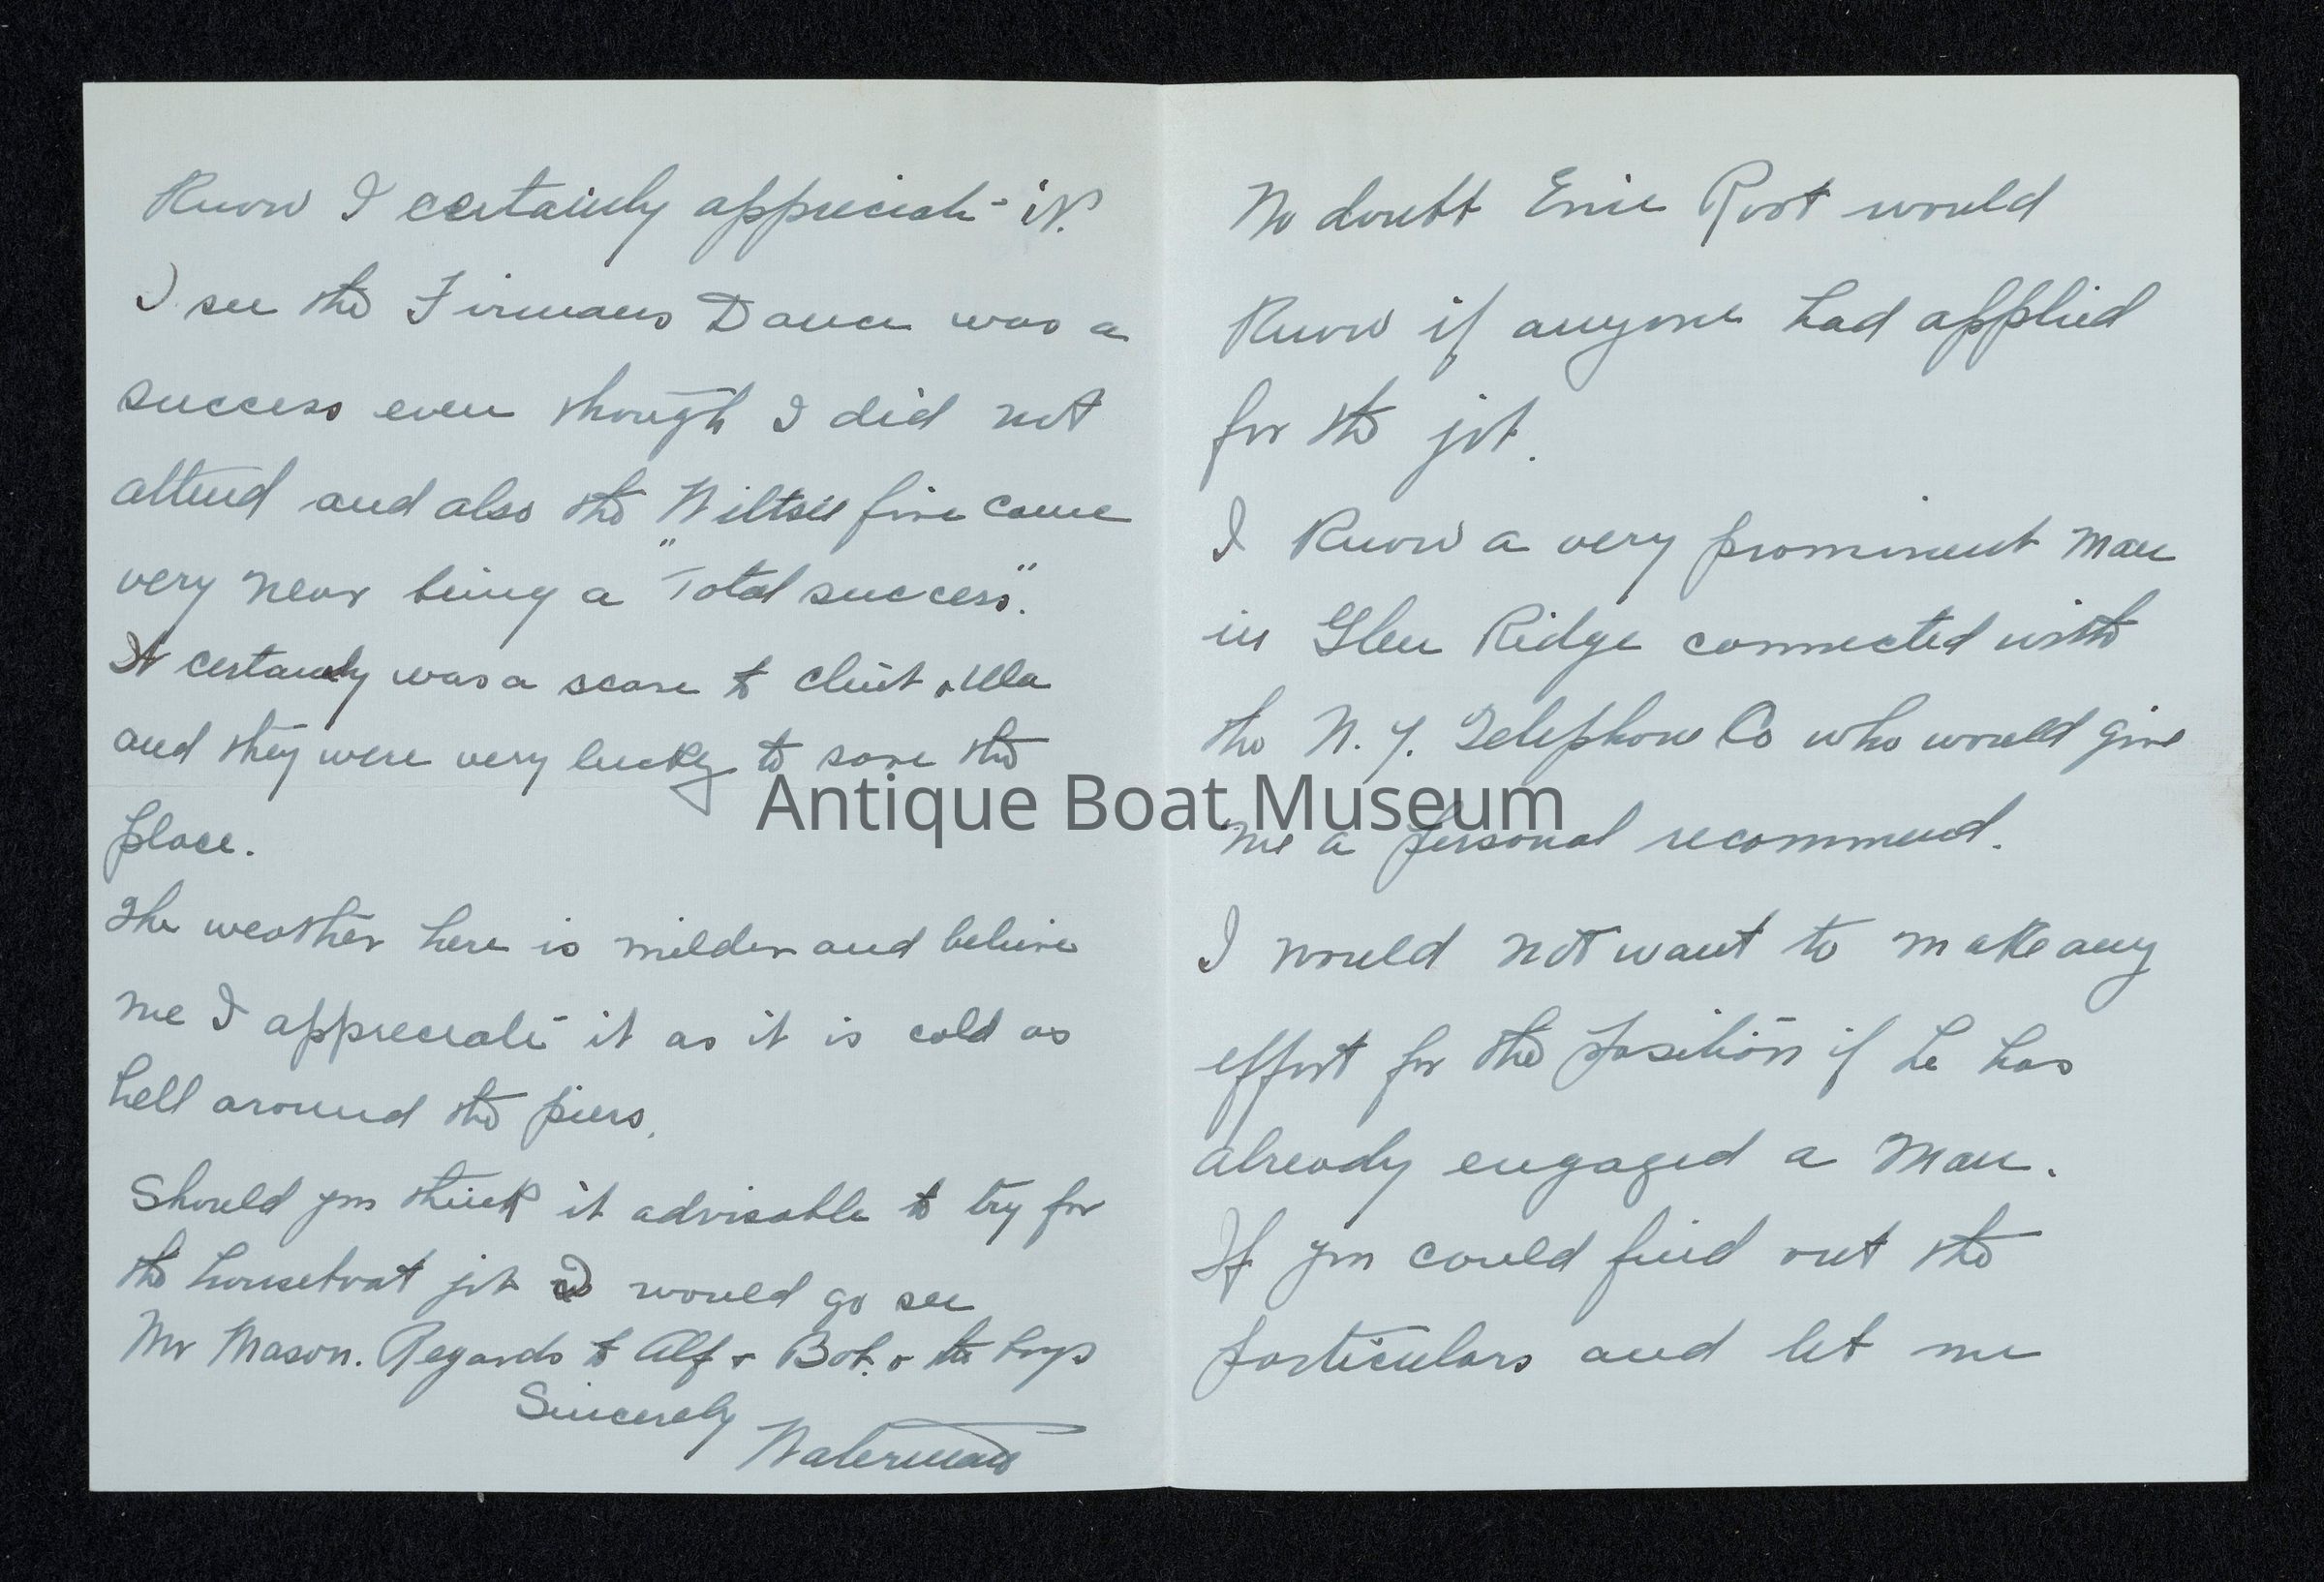 Know I certainly appreciate it.
I see the Firmans Dance was a
success even though I did not
attend and also the Wiltsie fire came
very near being a "Total success".
It certainly was a scare to Clint & Ula
and they were very lucky to save the
place.
The weather here is milder and believe
me I appreciate it as it is cold as
hell around the piers.
Should you think it advisable to try for
the houseboat job I would go see
Mr Mason. Regards to Alf & Bob. & the boys
Sincerely
Waterman
No doubt Ernie Root would
Know if anyone had applied
for the job.
I Know a very prominent man
in Glen Ridge connected with
the N. Y. Telephone Co who would give
me a personal recommend.
I would not want to make any
effort for the position if he has
already engaged a man.
If you could find out the
particulars and let me
Antique Boat Museum